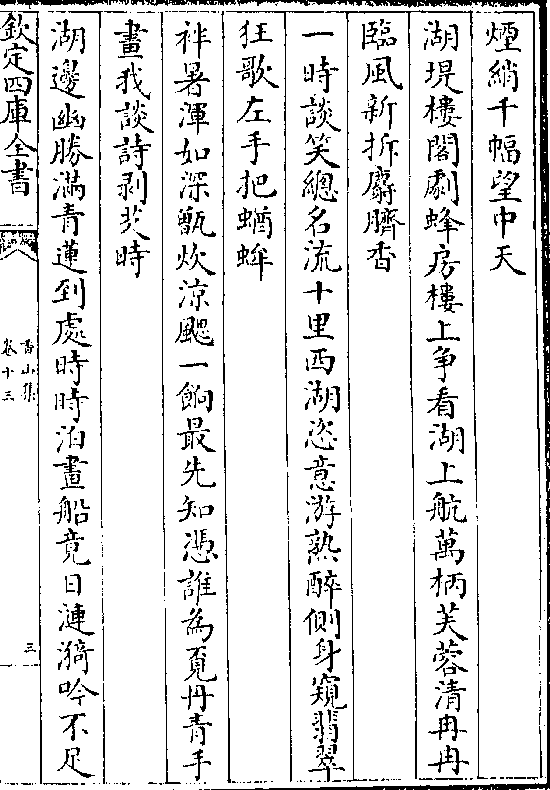 煙綃千幅望中天
湖堤樓閣劇蜂房樓上争看湖上航萬柄芙蓉清冉冉
臨風新拆麝臍香
一時談笑總名流十里西湖恣意游熟醉側身窺翡翠
狂歌左手把蝤蛑
袢暑渾如深甑炊涼颸一餉最先知憑誰為覓丹青手
畫我談詩剥芡時
湖邊幽勝滿青蓮到處時時泊畫船竟日漣漪吟不足
欽定四庫全書
香山集
卷十三
三